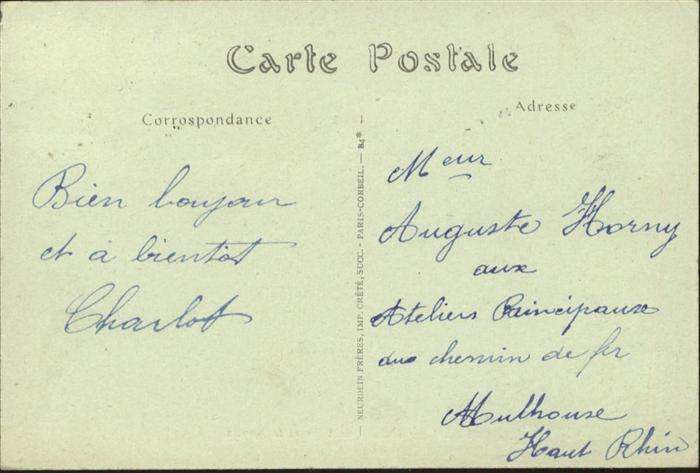 Carte Postale
Correspondance
Adresse
Bien bonjour
et à bientôt
Charlot
NEURDEIN FRÈRES, IMP. CRÉTÉ, SUCC. - PARIS-CORBEIL. —
Meur
Auguste Horny
aux
Ateliers Principaux
du chemin de fer
Mulhouse
Haut Rhin